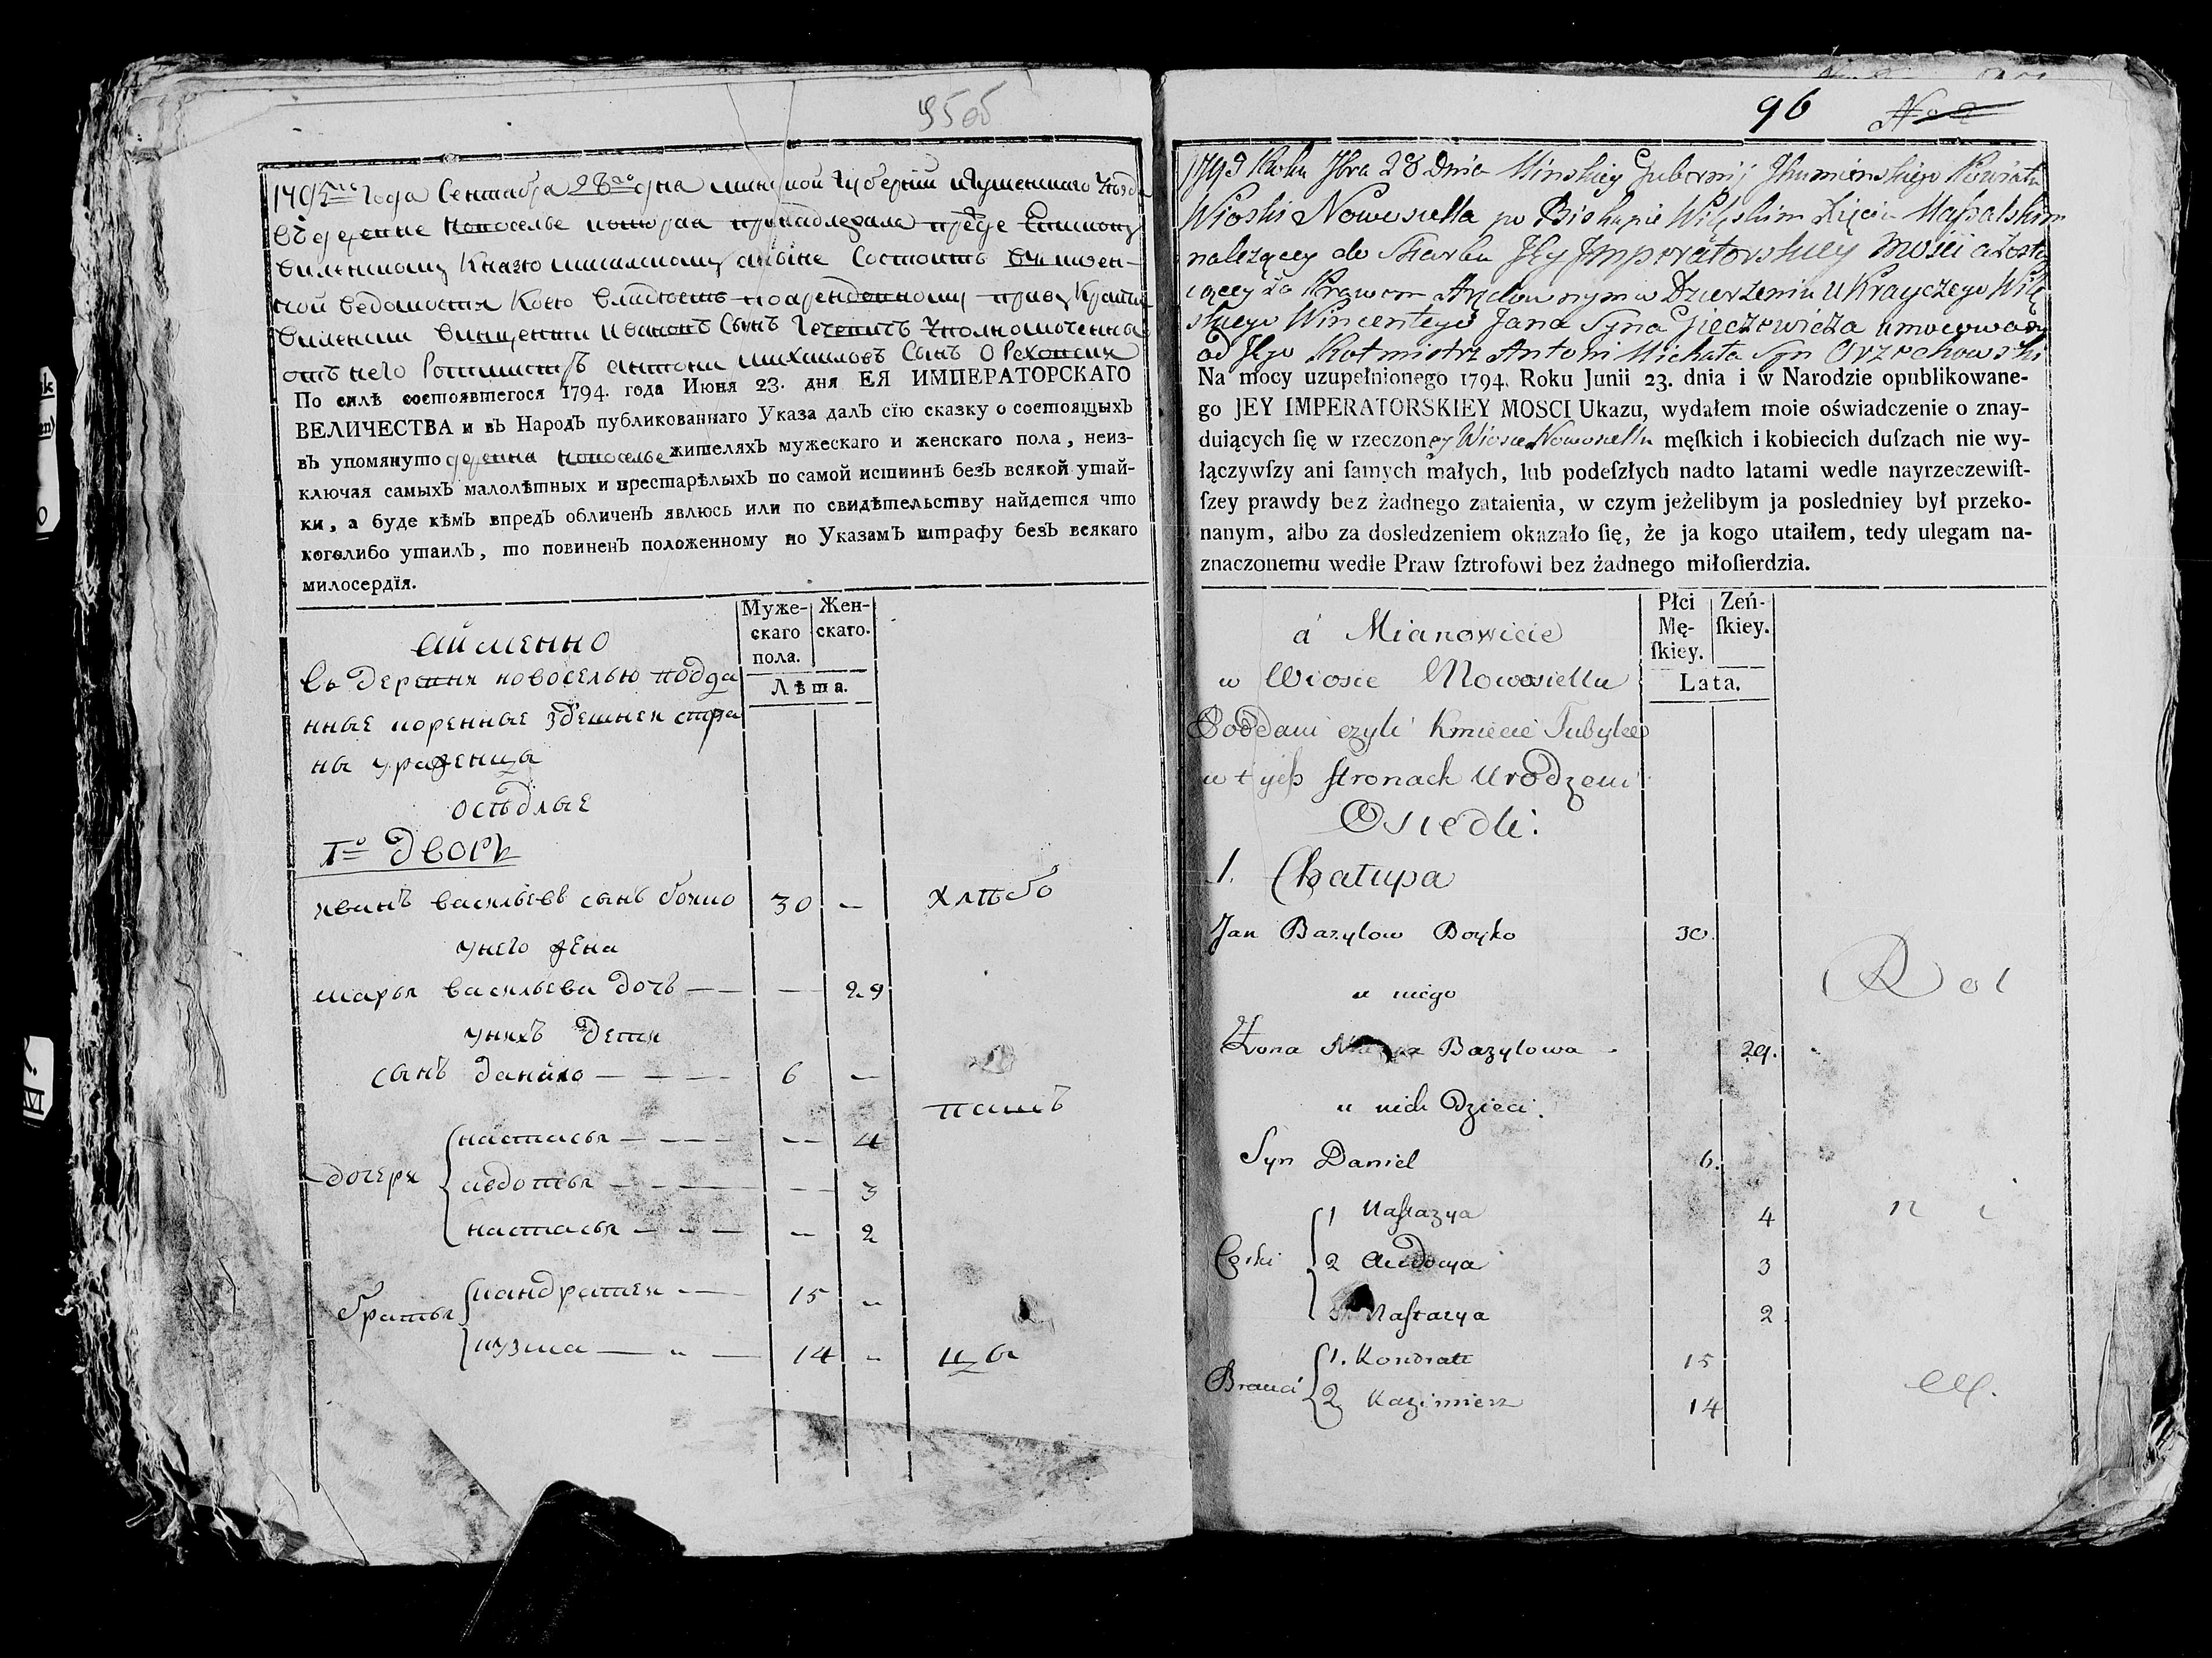 95об
1795го Года Сентабра 28го дня минской Губернии игуменскаго уезда
въ деревне Новоселье которая принадлежала прежде Епископу
виленскому Князю масалскому а ныне Состоитъ въ казен-
ной ведомости Коею владеетъ по арендовному праву Крайчи
виленски винцентий Ивановъ Сынъ
отъ него Ротмистръ антони михаиловъ Сынъ Орехов
По силѣ состоявшегося 1794. года Июня 23. дня ЕЯ ИМПЕРАТОРСКАГО
ВЕЛИЧЕСТВА и вЪ НародЪ публикованнаго Указа далЪ сїю сказку о состоящыхЪ
вЪ упомянуто деревни Новоселье жителяхЪ мужескаго и женскаго пола, неиз-
ключая самыхЪ малолѣтныхЪ и престарѣлыхЪ по самой истиинѣ безЪ всякой утай-
ки, а буде кѣмЪ впредЪ обличенЪ явлюсь или по свидѣтельству найдется что
коголибо утаилЪ, то повиненЪ положенному по УказамЪ штрафу безЪ всякаго
милосердїя.
Муже- Жен-
скаго скаго.
пола.
Лѣта.
аименно
въ деревни новоселью подда
нные коренные здешнеи стра
ны уроженцы
осѣдлые
1го Дворъ
иванъ васильевъ сынъ бойко 30 — хлѣбо
унего жена
марья васильева дочь — — — 29
унихъ дети
сынъ данило — — — 6 —
пашъ
настасья — — — — 4
дочери авдотья — — — — 3
настасья — — — — 2
братья кандратеи — — 15 „
кузма — „ — 14 „ цы
96 No 2
1795 Roku 7bra 28 Dnia Minskiey Gubernij Jhumienskiego Powiatu
Wioski Nowosiella po Biskupie Wilęskim Xięciu Massalskim
należący do Skarbu Jey Jmperatorskiey Mości a zosta
iącey za Prawem Arędownym w Dzierżeniu u Krayczego Wilę
skiego Wincentego Jana Syna Jieczewicza umocowany
od Jego Rotmistrz Antoni Michała Syn Orzechowski
Na mocy uzupełnionego 1794. Roku Junii 23. dnia i w Narodzie opublikowane-
go JEY IMPERATORSKIEY MOSCI Ukazu, wydałem moie oświadczenie o znay-
duiących ſię w rzeczoney Wiosce Nowosiellu męſkich i kobiecich duſzach nie wy-
łączywſzy ani ſamych małych, lub podeſzłych nadto latami wedle nayrzeczewiſt-
ſzey prawdy bez żadnego zataienia, w czym jeżelibym ja posledniey był przeko-
nanym, albo za dosledzeniem okazało ſię, że ja kogo utaiłem, tedy ulegam na-
znaczonemu wedle Praw ſztrofowi bez żadnego miłoſierdzia.
Płci Zeń-
Mę- ſkiey.
ſkiey.
Lata.
a Mianowicie
w Wiosce Nowosiellu
Poddani czyli Kmiecie Tubylce
w tych stronach Urodzeni
Osiedli:
1. Chałupa
Jan Bazylow Boyko 30.
u niego
Rol
Żona Bazylowa 29.
u nich Dzieci.
Syn Daniel 6.
1 Nastazya 4 n i
Corki 2 Audocya 3
3 Nastazya 2
1. Kondrati 15
Bracia
2 Kazimierz 14 cy.